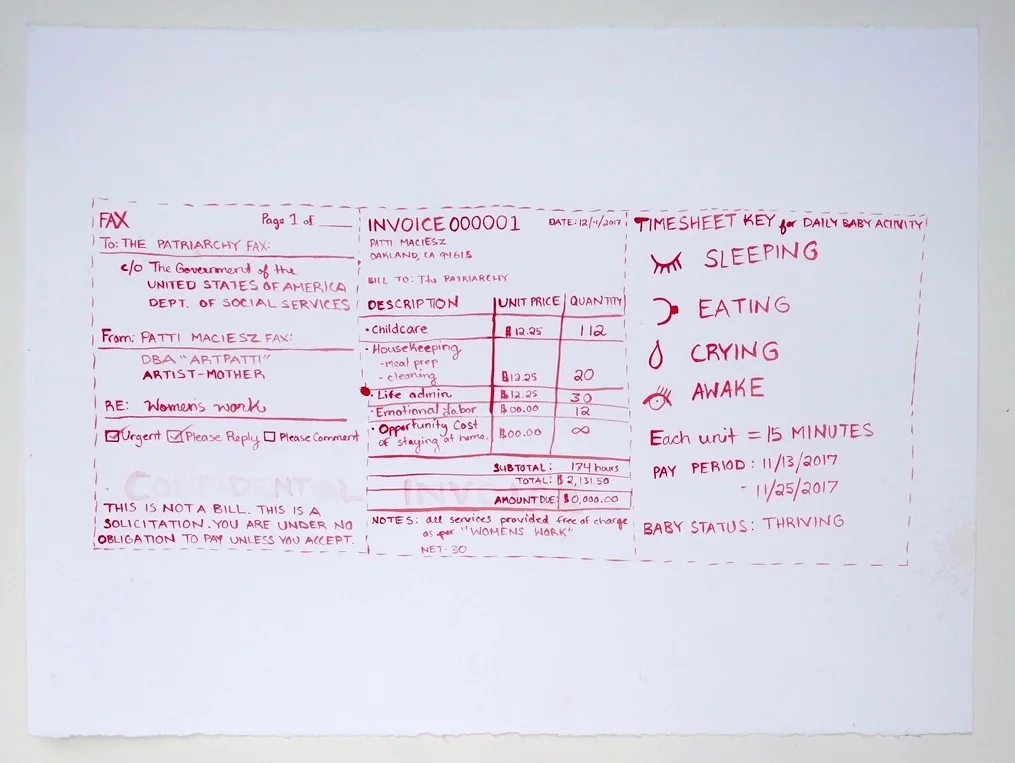 FAX
Page 1 of ____
To: THE PATRIARCHY FAX:
c/o The Government of the
UNITED STATES OF AMERICA
DEPT. OF SOCIAL SERVICES
From: PATTI MACIESZ FAX:
DBA "ARTPATTI"
ARTIST-MOTHER
RE: Women's work
Urgent Please Reply Please Comment
CONFIDENTIAL
THIS IS NOT A BILL. THIS IS A
SOLICITATION. YOU ARE UNDER NO
OBLIGATION TO PAY UNLESS YOU ACCEPT.
INVOICE 000001
DATE: 12/4/2017
PATTI MACIESZ
OAKLAND, CA 94618
BILL TO: The PATRIARCHY
DESCRIPTION UNIT PRICE QUANTITY
• Childcare $12.25 112
• Housekeeping
- meal prep
- cleaning $12.25 20
• Life admin $12.25 30
• Emotional labor $00.00 12
• Opportunity Cost
of staying at home. $00.00 ∞
SUBTOTAL: 174 hours
TOTAL: $2,131.50
AMOUNT DUE: $0,000.00
NOTES: all services provided free of charge
as per "WOMENS WORK"
NET-30
TIMESHEET KEY for DAILY BABY ACTIVITY
SLEEPING
EATING
CRYING
AWAKE
Each unit = 15 MINUTES
PAY PERIOD: 11/13/2017
- 11/25/2017
BABY STATUS: THRIVING